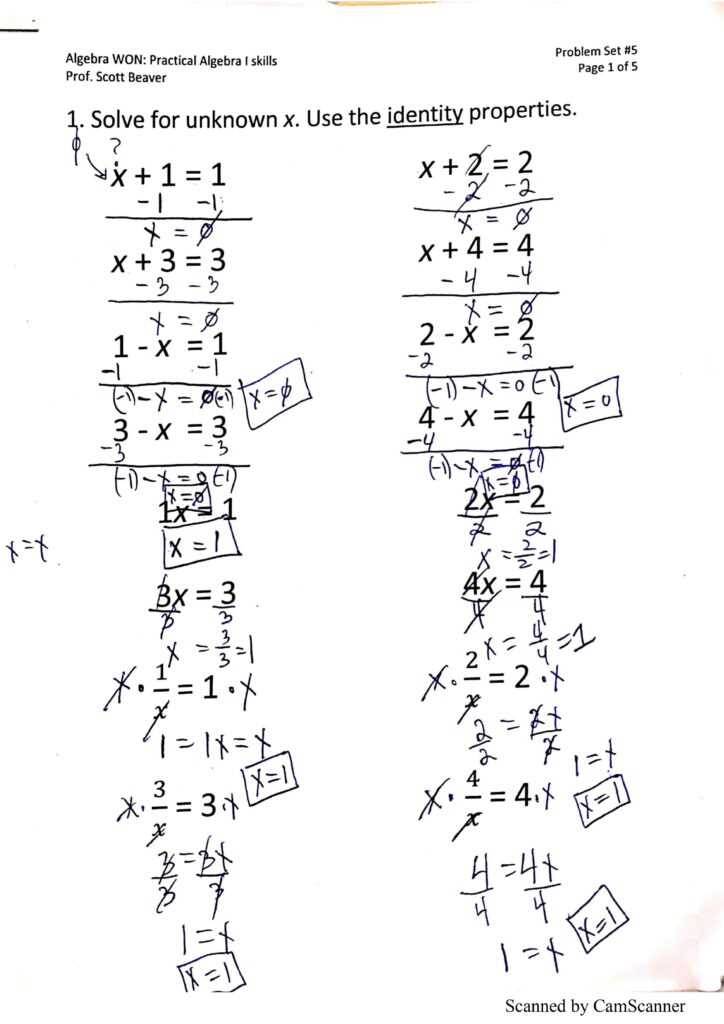 Algebra WON: Practical Algebra I skills
Prof. Scott Beaver
Problem Set #5
Page 1 of 5
1. Solve for unknown x. Use the identity properties.
∅ ?
x + 1 = 1
- 1 - 1
x = ∅
x + 3 = 3
- 3 - 3
x = ∅
1 - x = 1
-1 -1
(-1) - x = ∅ (-1)
x = ∅
3 - x = 3
-3 -3
(-1) - x = 0 (-1)
x = ∅
1x = 1
x = 1
x = x
3x = 3
3 3
x = 3/3 = 1
x · 1/x = 1 · x
1 = 1x = x
x = 1
x · 3/x = 3 · x
3/3 = 3x/3
1 = x
x = 1
x + 2 = 2
- 2 - 2
x = ∅
x + 4 = 4
- 4 - 4
x = ∅
2 - x = 2
-2 -2
(-1) - x = 0 (-1)
x = 0
4 - x = 4
-4 -4
(-1) - x = ∅ (-1)
x = 0
2x = 2
2 2
x = 2/2 = 1
4x = 4
4 4
x = 4/4 = 1
x · 2/x = 2 · x
2/2 = 2x/2
1 = x
x = 1
x · 4/x = 4 · x
4/4 = 4x/4
1 = x
x = 1
Scanned by CamScanner